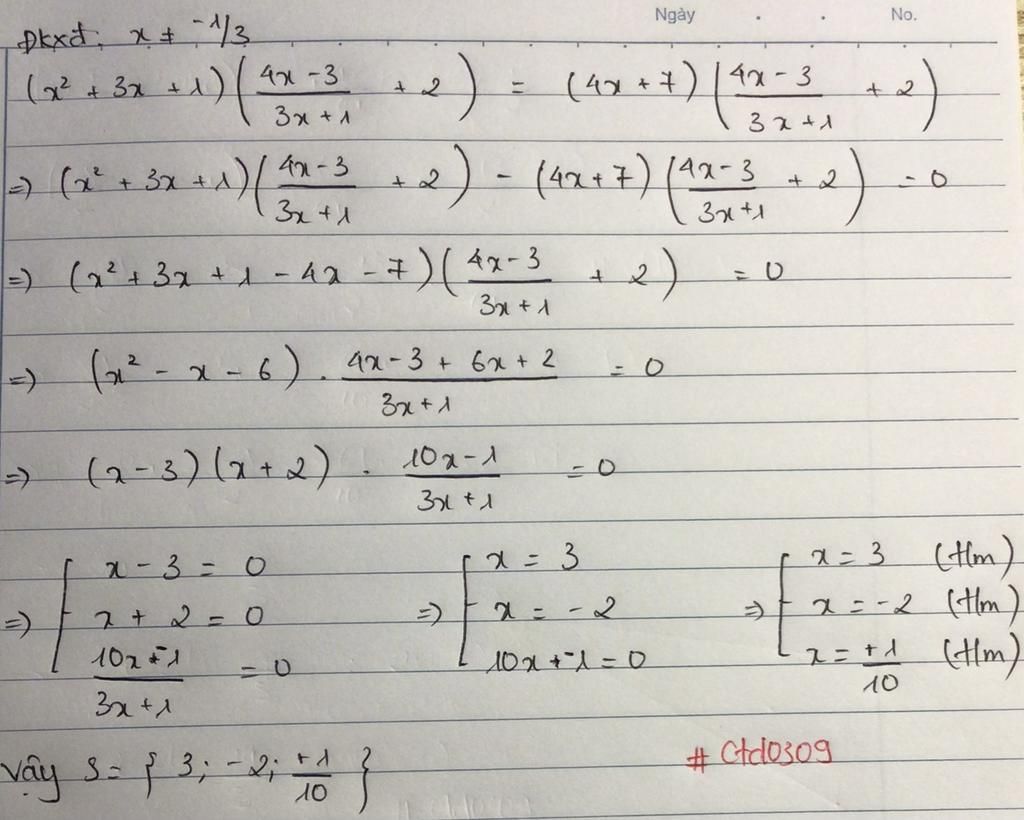 Ngày . . No.
Đkxđ: x ≠ -1/3
(x² + 3x + 1)((4x - 3)/(3x + 1) + 2) = (4x + 7)((4x - 3)/(3x + 1) + 2)
=) (x² + 3x + 1)((4x - 3)/(3x + 1) + 2) - (4x + 7)((4x - 3)/(3x + 1) + 2) = 0
=) (x² + 3x + 1 - 4x - 7)((4x - 3)/(3x + 1) + 2) = 0
=) (x² - x - 6) . (4x - 3 + 6x + 2)/(3x + 1) = 0
=) (x - 3)(x + 2) . (10x - 1)/(3x + 1) = 0
x - 3 = 0 x = 3 x = 3 (t/m)
=) x + 2 = 0 =) x = -2 => x = -2 (t/m)
(10x - 1)/(3x + 1) = 0 10x - 1 = 0 x = +1/10 (t/m)
Vậy S = { 3; -2; +1/10 }
# Ctd0309